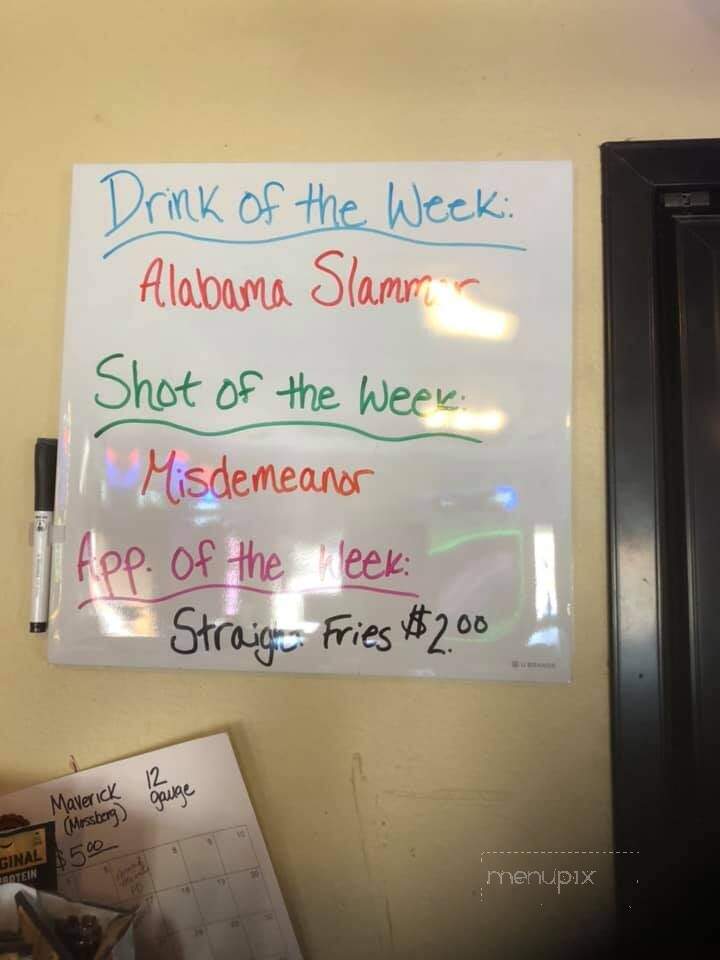 Drink of the Week:
Alabama Slammer
Shot of the Week:
Misdemeanor
App. of the Week:
Straight Fries $2.00
U BRANDS
Maverick 12
(Mossberg) gauge
$5.00
GINAL
PROTEIN
menupix